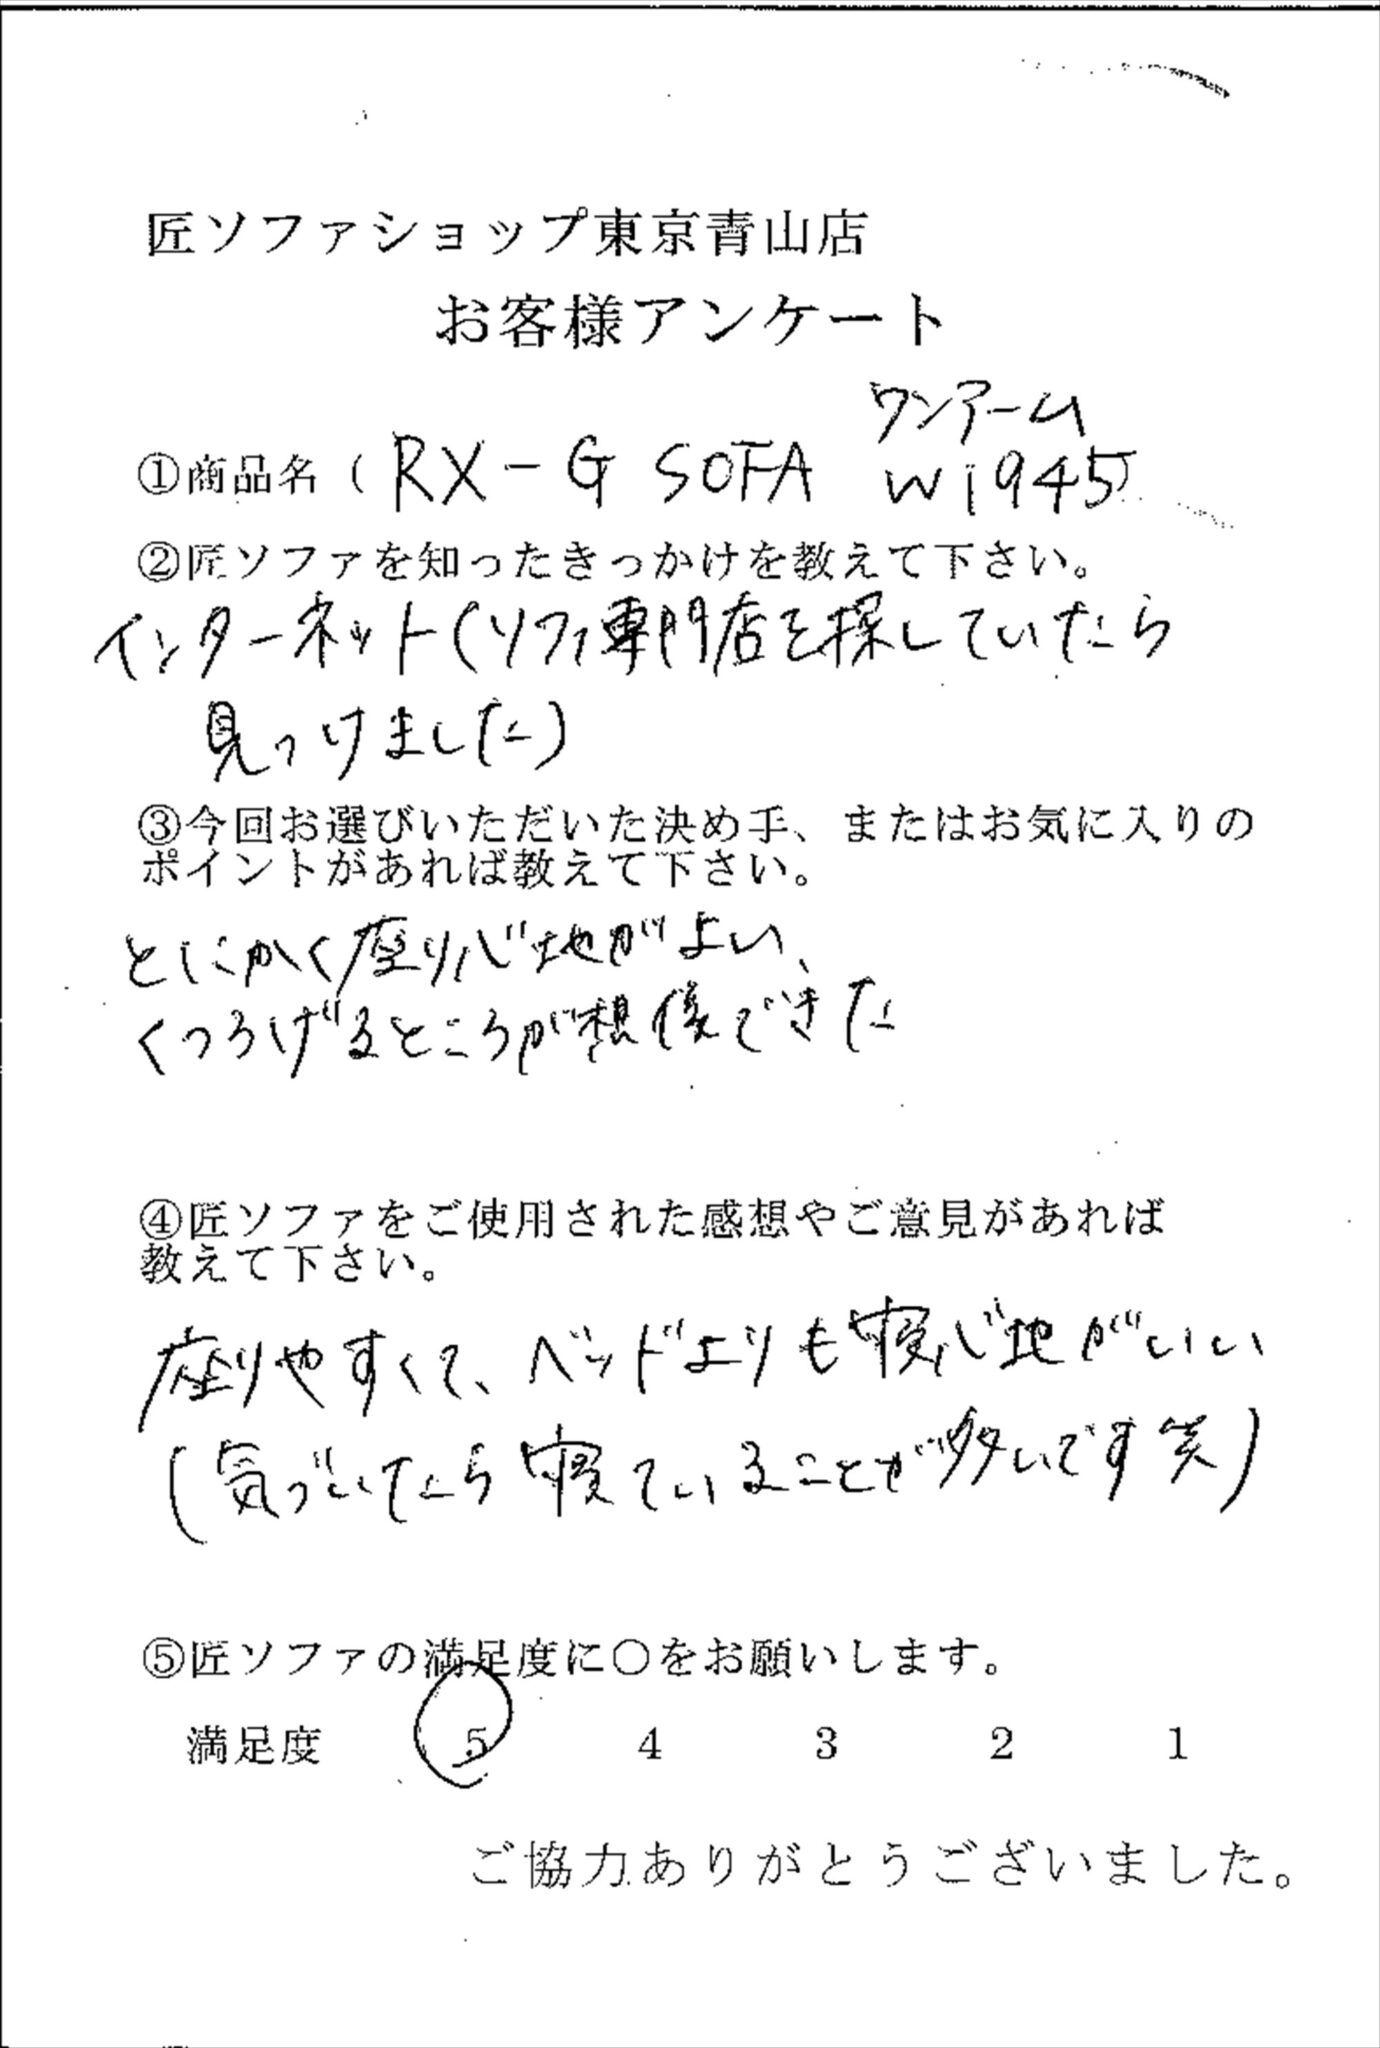 匠ソファショップ東京青山店
お客様アンケート
ワンアーム
①商品名（RX-G SOFA W1945）
②匠ソファを知ったきっかけを教えて下さい。
インターネット(ソファ専門店を探していたら
見つけました)
③今回お選びいただいた決め手、またはお気に入りの
ポイントがあれば教えて下さい。
とにかく座り心地がよい、
くつろげるところが想像できた
④匠ソファをご使用された感想やご意見があれば
教えて下さい。
座りやすくて、ベッドよりも寝心地がいい
(気づいたら寝ていることが多いです笑)
⑤匠ソファの満足度に〇をお願いします。
満足度 5 4 3 2 1
ご協力ありがとうございました。